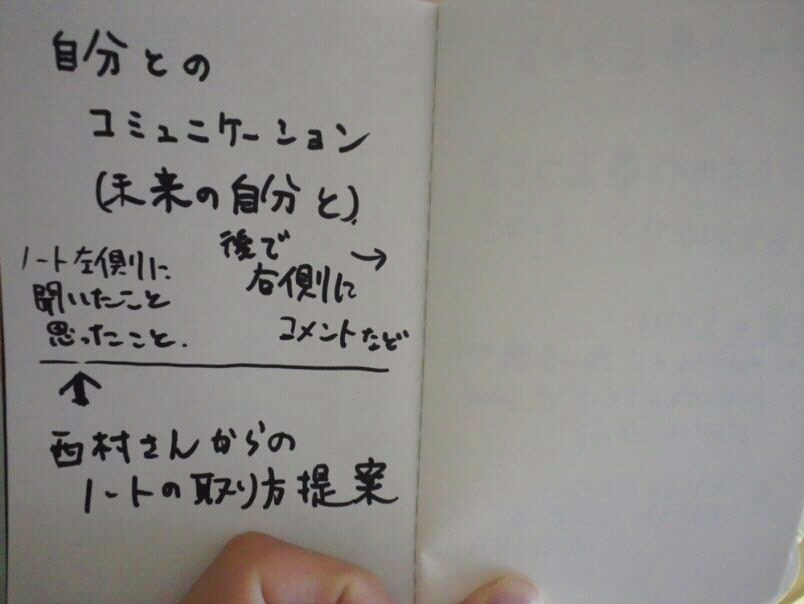 自分との
コミュニケーション
(未来の自分と)
ノート左側に
聞いたこと
思ったこと.
後で →
右側に
コメントなど
↑
西村さんからの
ノートの取り方提案